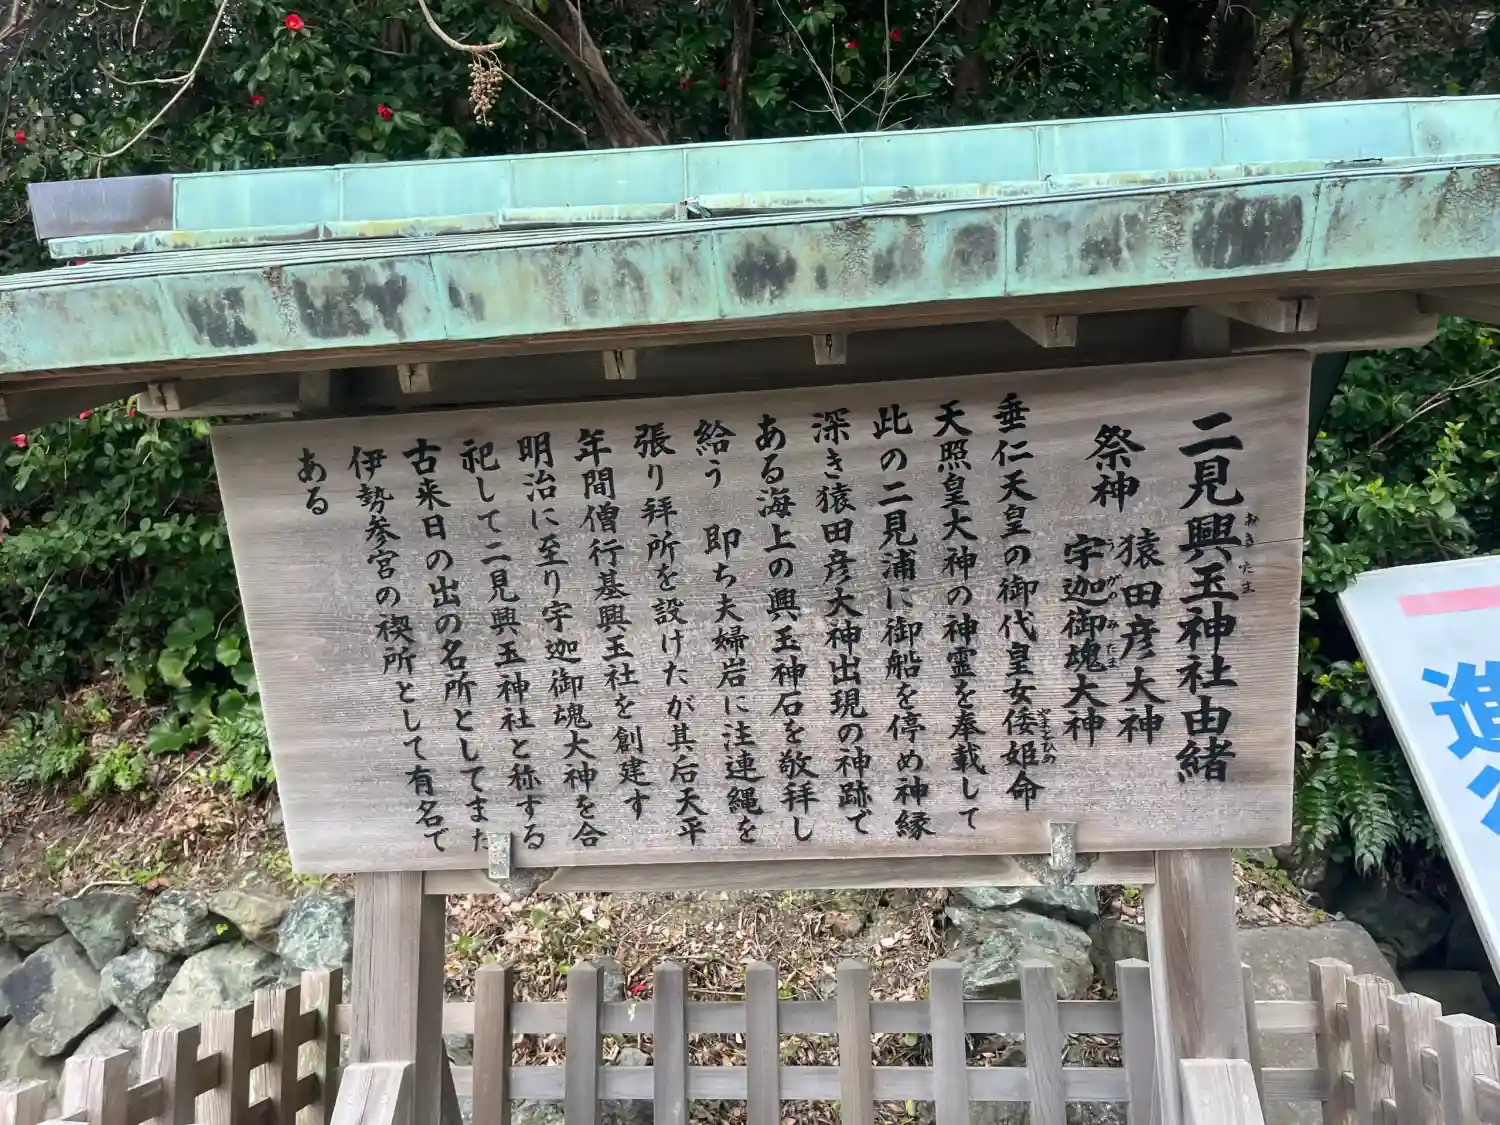 二見興玉神社由緒
おきたま
祭神 猿田彦大神
宇迦御魂大神
うがのみたま
垂仁天皇の御代皇女倭姫命
やまとひめ
天照皇大神の神霊を奉載して
此の二見浦に御船を停め神縁
深き猿田彦大神出現の神跡で
ある海上の興玉神石を敬拝し
給う 即ち夫婦岩に注連縄を
張り拝所を設けたが其后天平
年間僧行基興玉社を創建す
明治に至り宇迦御魂大神を合
祀して二見興玉神社と称する
古来日の出の名所としてまた
伊勢参宮の禊所として有名で
ある
進